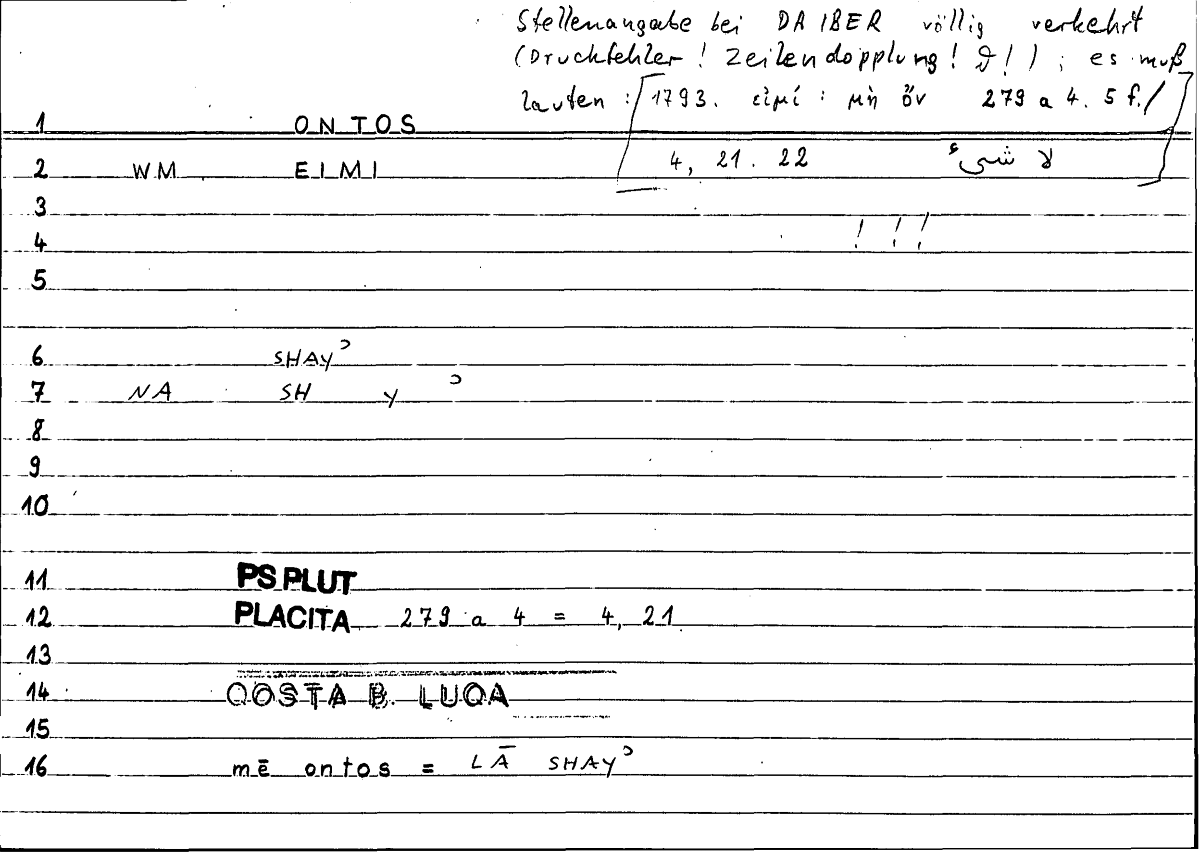 Stellenangabe bei DAIBER völlig verkehrt
(Druckfehler! Zeilendopplung! !); es muß
lauten: [1793. εἰμί: μὴ ὄν 279 a 4. 5 f./
1 ONTOS
2 WM EIMI 4, 21. 22 لا شىء]
3
4 ! ! !
5
6 SHAYʾ
7 NA SH Y ʾ
8
9
10
11 PS.PLUT
12 PLACITA 279 a 4 = 4, 21
13
14 QOSTA B. LUQA
15
16 mē ontos = LĀ SHAYʾ